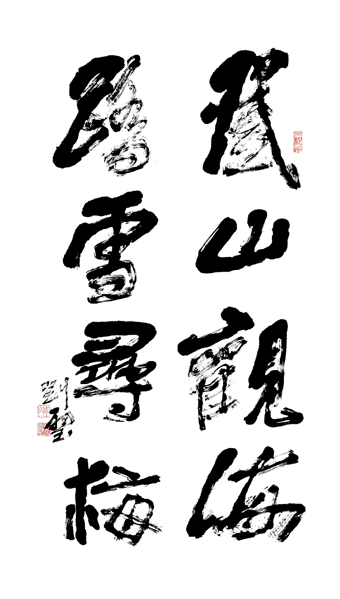 登山觀海
踏雪尋梅